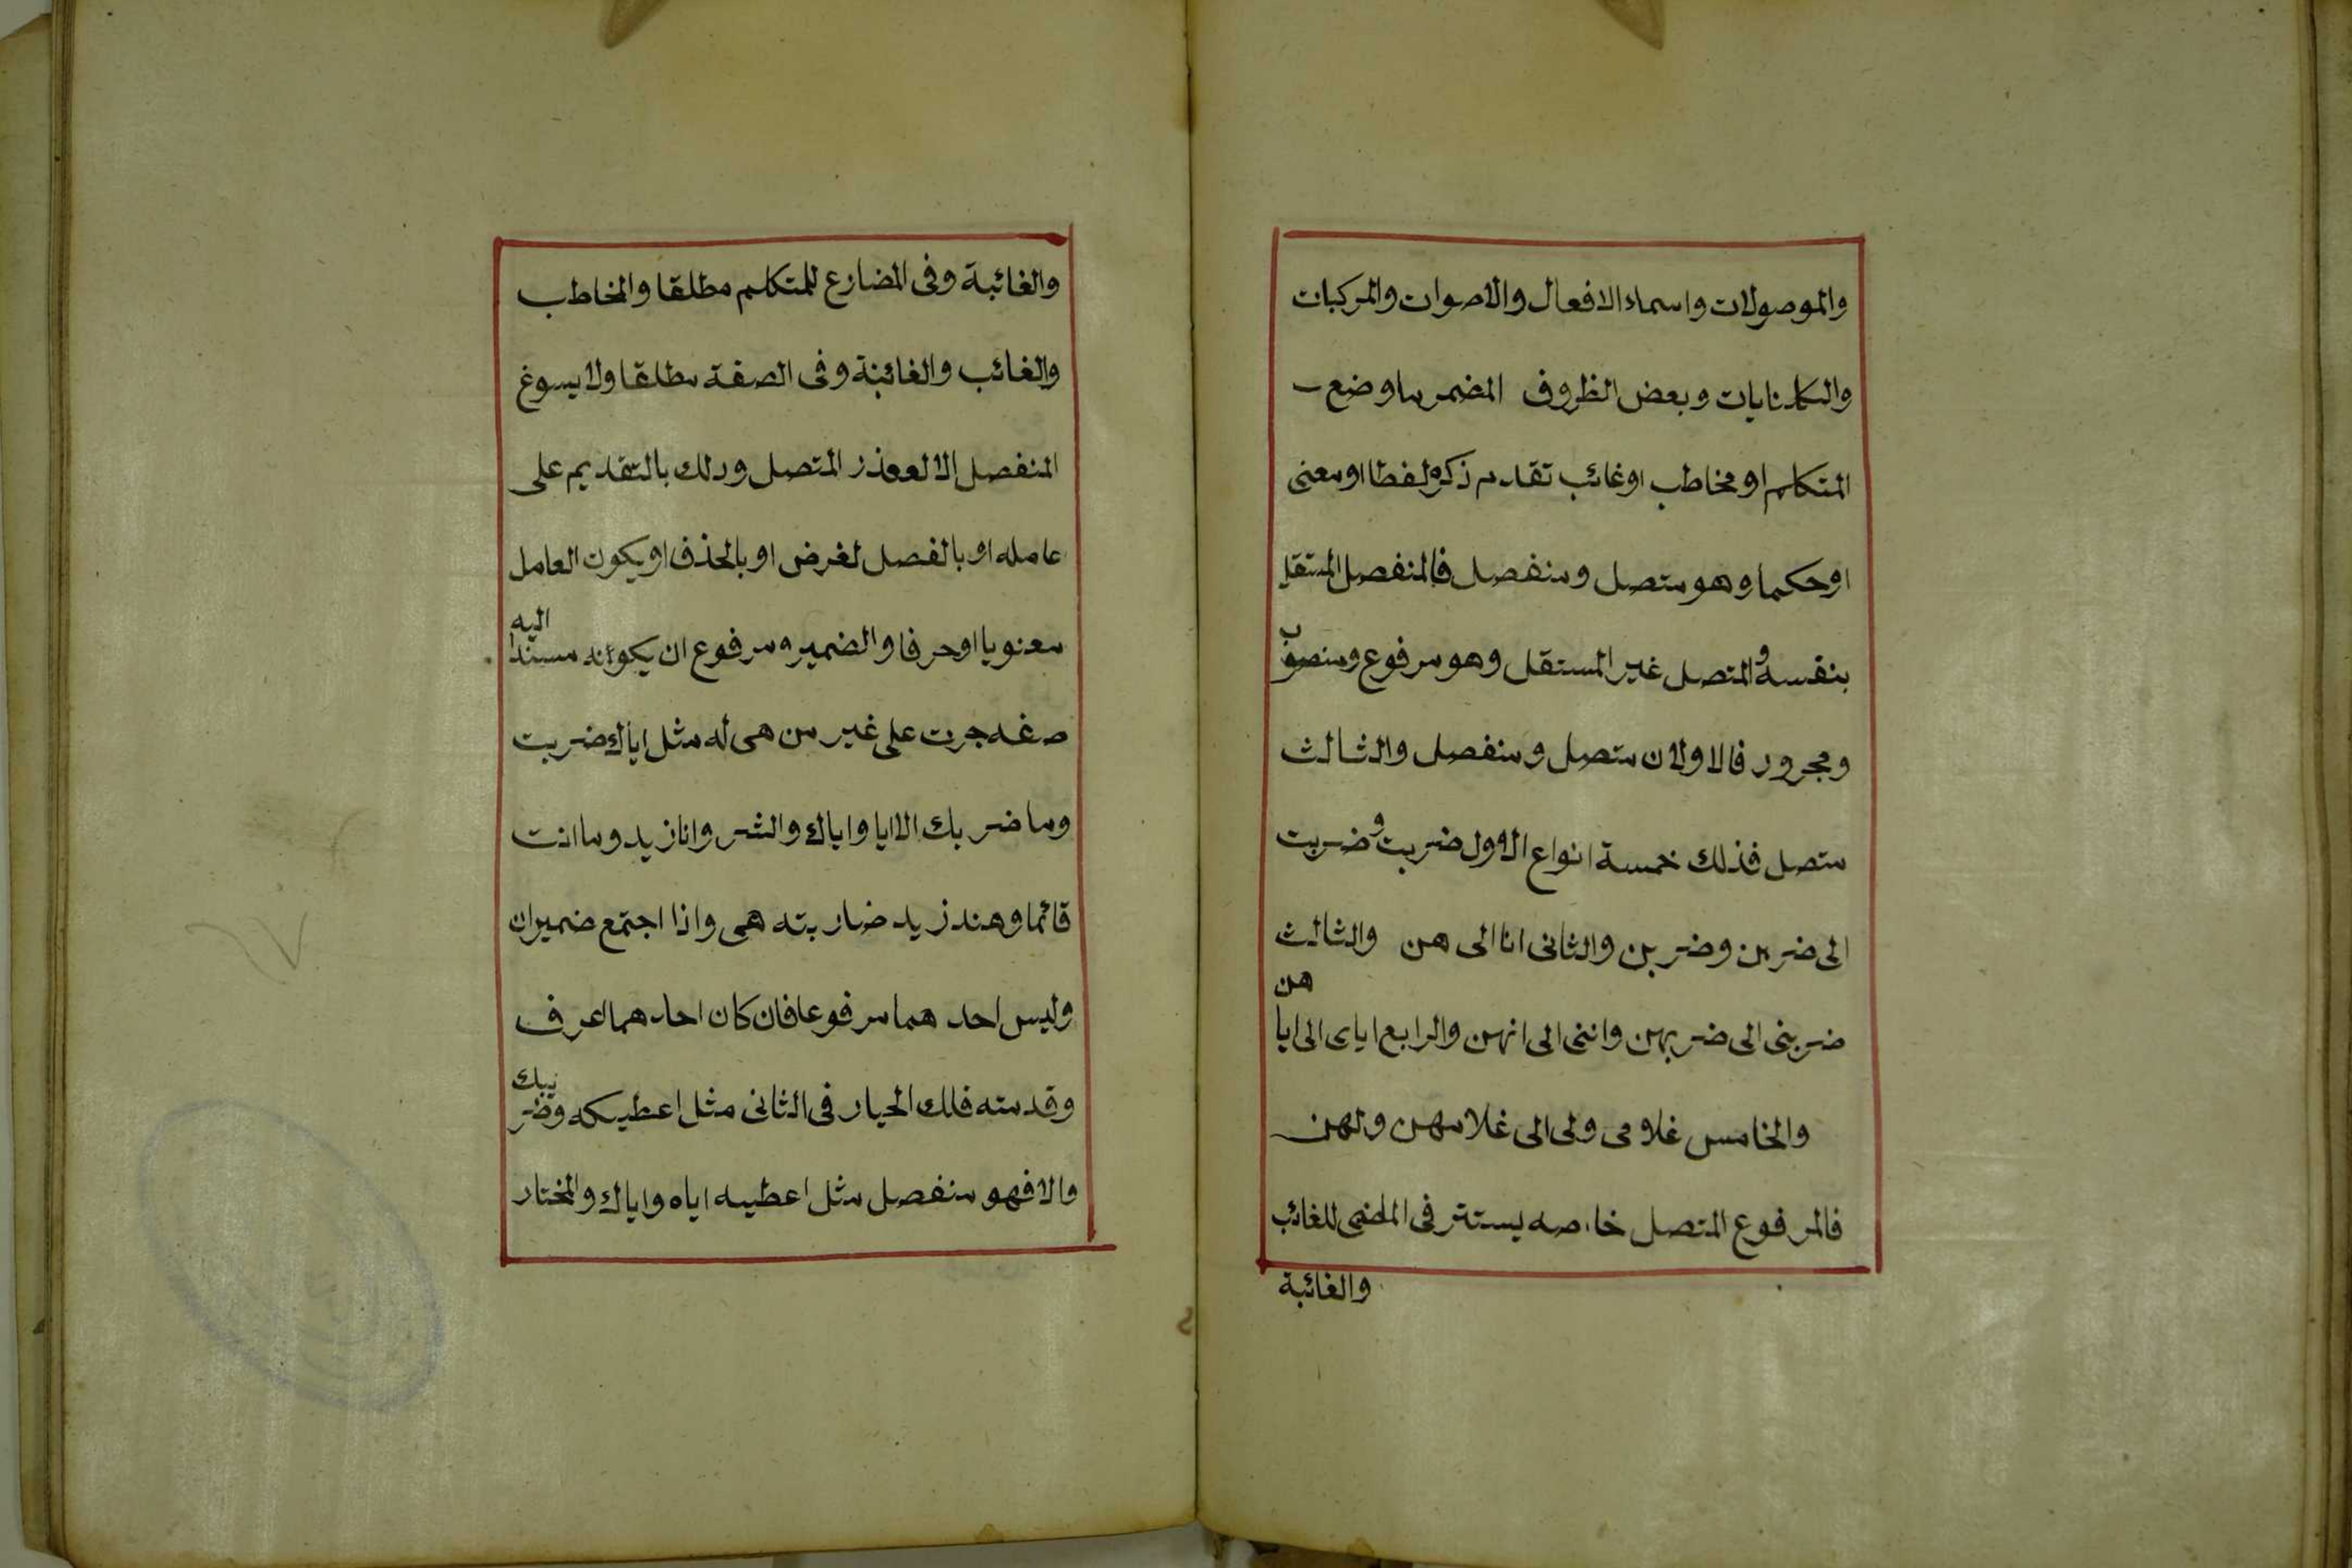 والموصولات واسماء الافعال والاصوات والمركبات
والكنايات وبعض الظروف المضمر ما وضع
المتكلم او مخاطب او غائب تقدم ذكره لفظا او معنى
او حكما وهو متصل ومنفصل فالمنفصل المستقل
بنفسه والمتصل غير المستقل وهو مرفوع ومنصوب
ومجرور فالاولان متصل ومنفصل والثالث
متصل فذلك خمسة انواع الاول ضربت وضربت
الى ضربن وضربن والثانى انا الى هن والثالث
ضربنى الى ضربهن واننى الى انهن والرابع اياى الى اياهن
والخامس غلامى ولى الى غلامهن ولهن
فالمرفوع المتصل خاصه يستتر فى الماضى للغائب
والغائبة
والغائبة وفى المضارع للمتكلم مطلقا والمخاطب
والغائب والغائبة وفى الصفة مطلقا ولا يسوغ
المنفصل الا لتعذر المتصل وذلك بالتقديم على
عامله او بالفصل لغرض او بالحذف او يكون العامل
معنويا او حرفا والضمير مرفوع ان يكونه مسندا اليه
صفه جرت على غير من هى له مثل اياك ضربت
وما ضربك الا ايا واياك والشر وانا زيد وما انت
قائما وهند زيد ضاربته هى واذا اجتمع ضميران
وليس احدهما مرفوعا فان كان احدهما اعرف
وقدمته فلك الخيار فى الثانى مثل اعطيكه وضربيك
والا فهو منفصل مثل اعطيه اياه واياك والمختار